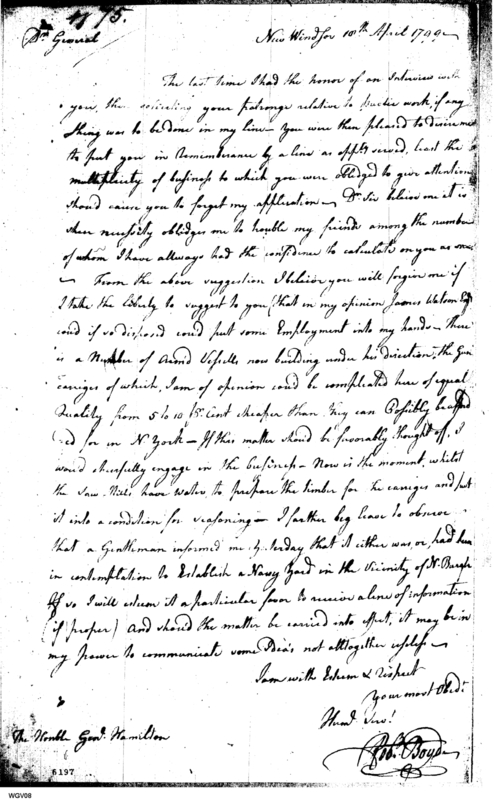 1775.
Dr. General
New Windsor 10th April 1799
The last time I had the honor of an Interview with
you, then soliciting your patronage relative to Publie work, if any
thing was to be done in my line - you were then pleased to desire me
to put you in remembrance by a line as opptʸ served, least the
multiplicity of business to which you were obledged to give attention
should cause you to forget my application - Dr. Sir beleive me it is
sheer necessity oblidges me to trouble my friends among the number
of whom I have allways had the confidence to calculate on you as one
- From the above suggestion I beleive you will forgive me if
I take the Liberty to suggest to you (that in my opinion James Watson Esqr
coud if so disposed coud put some Employment into my hands - there
is a Number of Armd Vessells now building under his direction, the Gun
carriges of which, I am of opinion coud be compleated here of equal
Quality from 5 to 10 pr. Cent cheaper than they can Possibly be
ed for in N York - If this matter should be favorably thought off, I
woud chearfully engage in the business - Now is the moment, whilst
the Saw Mills have water, to prepare the timber for the carriges and put
it into a condition for seasoning - I farther beg leave to observe
that a Gentleman informed me yesterday that it either was, or, had been
in contemplation to Establish a Navy Yard in the Vicinity of N. Burgh
If so I will esteem it a particular favor to receive a line of information
(if proper) And should the matter be carried into effect, it may be in
my power to communicate some Idea's not alltogether useless -
I am with Esteem & respect
Your most Obedt
Huml Servt
Robt. Boyd
The Honble Genl. Hamilton
6197
WGV08